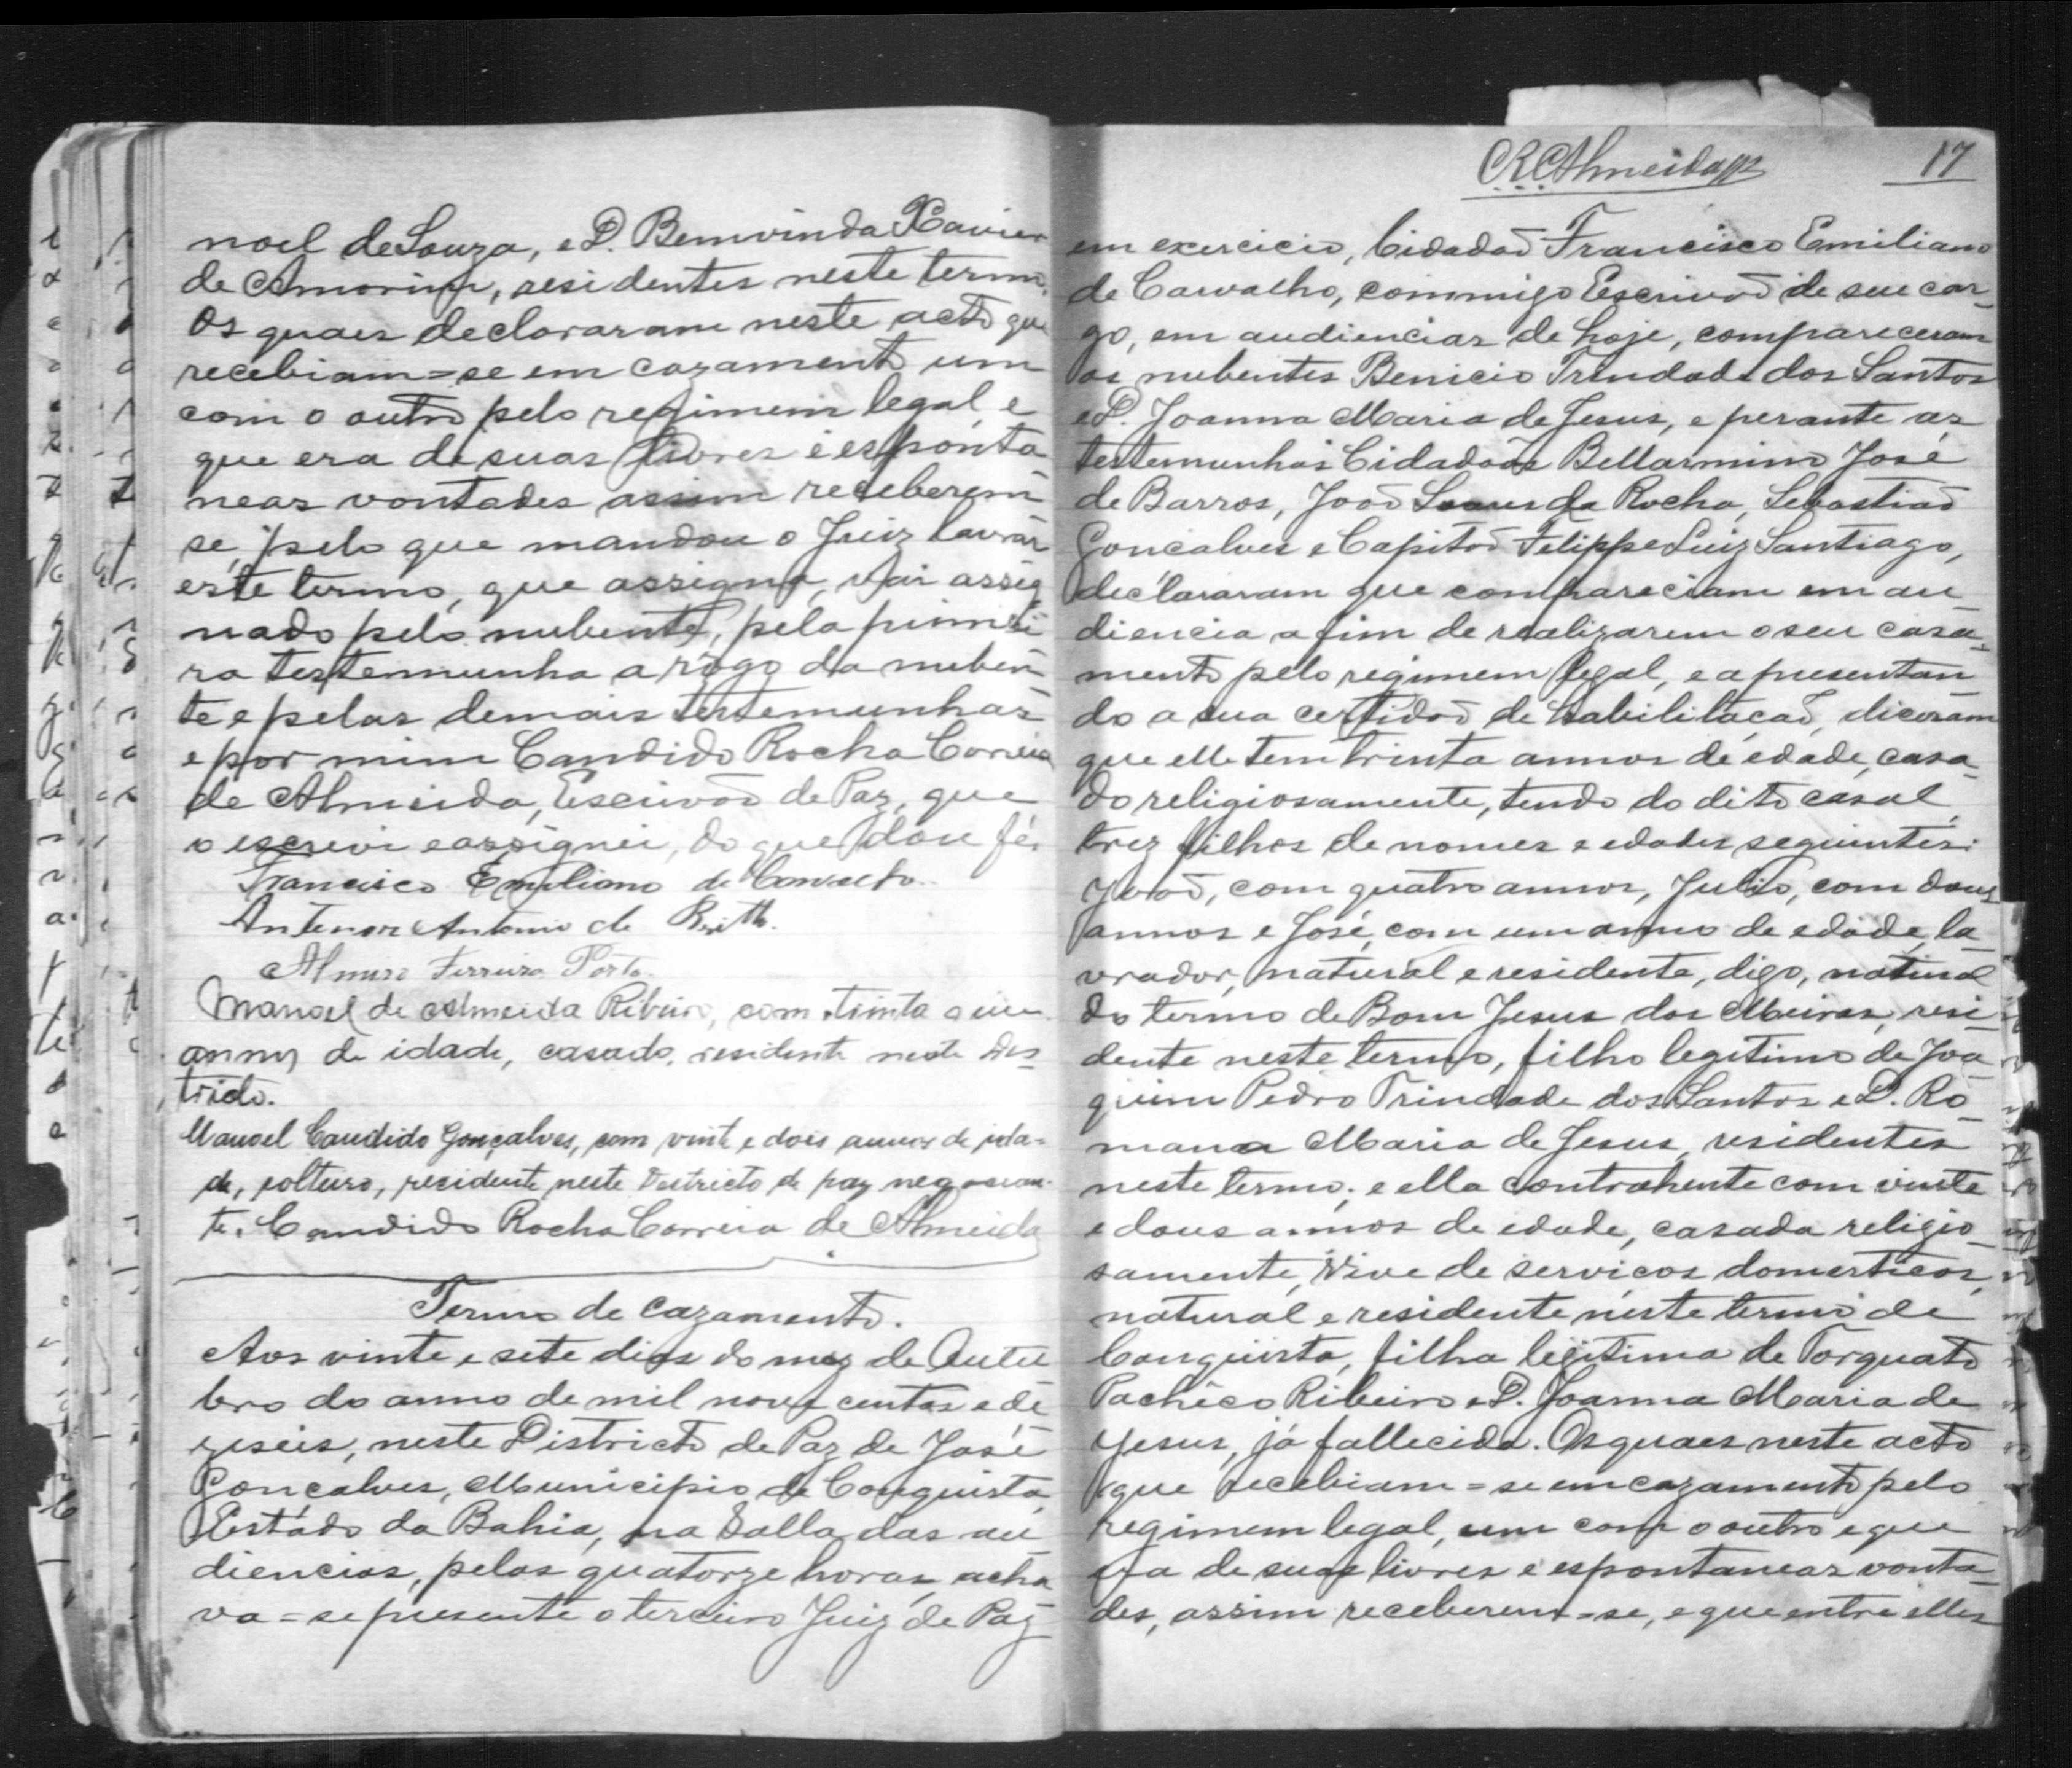 noel de Souza, e D. Bemvinda Xavier
de Amorim, residentes neste termo.
Os quaes declararam neste acto que
recebiam=se em cazamento um
com o outro pelo regimem legal, e
que era de suas livres e esponta
neas vontades assim receberem
se, pelo que mandou o Juiz lavrar
este termo, que assigna, vai assig
nado pelo nubente, pela primei
ra testemunha a rôgo da nuben
te e pelas demais testemunhas
e por mim Candido Rocha Correia
de Almeida, Escrivaõ de Paz, que
o escrevi e assignei, do que dou fé.
Francisco Emiliano de Carvalho.
Antenor Antonio de Britto.
Ferreira Porto.
Manoel de Almeida Ribeiro, com trinta
annos de idade, casado, residente neste Des-
tricto.
Manoel Candido Gonçalves, com vinte e dois annos de ida=
de, solteiro, residente neste Destricto de paz negocian-
te. Candido Rocha Correia de Almeida
Termo de cazamento.
Aos vinte e sete dias do mez de Outu
bro do anno de mil nove centos e de
zeseis, neste Districto de Paz de José
Gonçalves, Municipio de Conquista,
Estádo da Bahia, na Salla das au
diencias, pelas quatorze horas, acha
va=se presente o terceiro Juiz de Paz
CRCAlmeida 17
em exercicio, Cidadaõ Francisco Emiliano
de Carvalho, commigo Escrivaõ de seu car-
go, em audiencias de hoje, compareceram
os nubentes Benicio Trindade dos Santos
e D. Joanna Maria de Jesus, e perante as
testemunhas Cidadaõs Bellarmino José
de Barros, Joaõ Soares da Rocha, Sebastiaõ
Gonçalves e Capitaõ Felippe Luiz Santiago,
declararam que compareciam em au
diencia a fim de realizarem o seu casa-
mento pelo regimem legal, e apresentan
do a sua certidaõ de habilitaçaõ, diceram
que elle tem trinta annos de edade, casa-
do religiosamente, tendo do dito casal
trez filhos de nomes e edades seguintes:
Joaõ, com quatro annos, Julio, com dous
annos e José, com um anno de edade, la-
vrador, natural e residente, digo, natural
do termo de Bom Jesus dos Meiras, resi-
dente neste termo, filho legitimo de Joa-
quim Pedro Trindade dos Santos e D. Ro-
mana Maria de Jesus, residentes
neste termo; e ella contrahente com vinte
e dous annos de edade, casada religio-
samente, vive de serviços domesticos,
natural e residente neste termo de
Conquista, filha legitima de Torquato
Pachêco Ribeiro e D. Joanna Maria de
Jesus, já fallecida. Os quaes neste acto
que recebiam=se em cazamento pelo
regimem legal, um com o outro e que
era de suas livres e espontaneas vonta-
des, assim receberem=se, e que entre elles